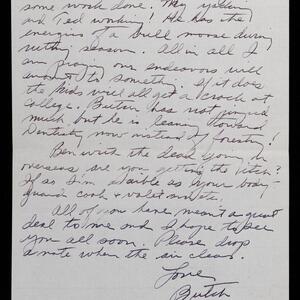 some work done. My yelling
and Ted working! He has the
energies of a bull moose during
rutting season. All in all I
am praying our endeavors will
amount to something. If it does
the kids will all get a crack at
college. Butch has not
much but he is leaning toward
Dentistry now instead of forestry!
Ben with the dead going to
overseas are you getting the itch?
If so I'm available as your body
guard cook & valet
All of you have meant a great
deal to me and I hope to see
you all soon. Please drop
a note when the air clears.
Love
Butch